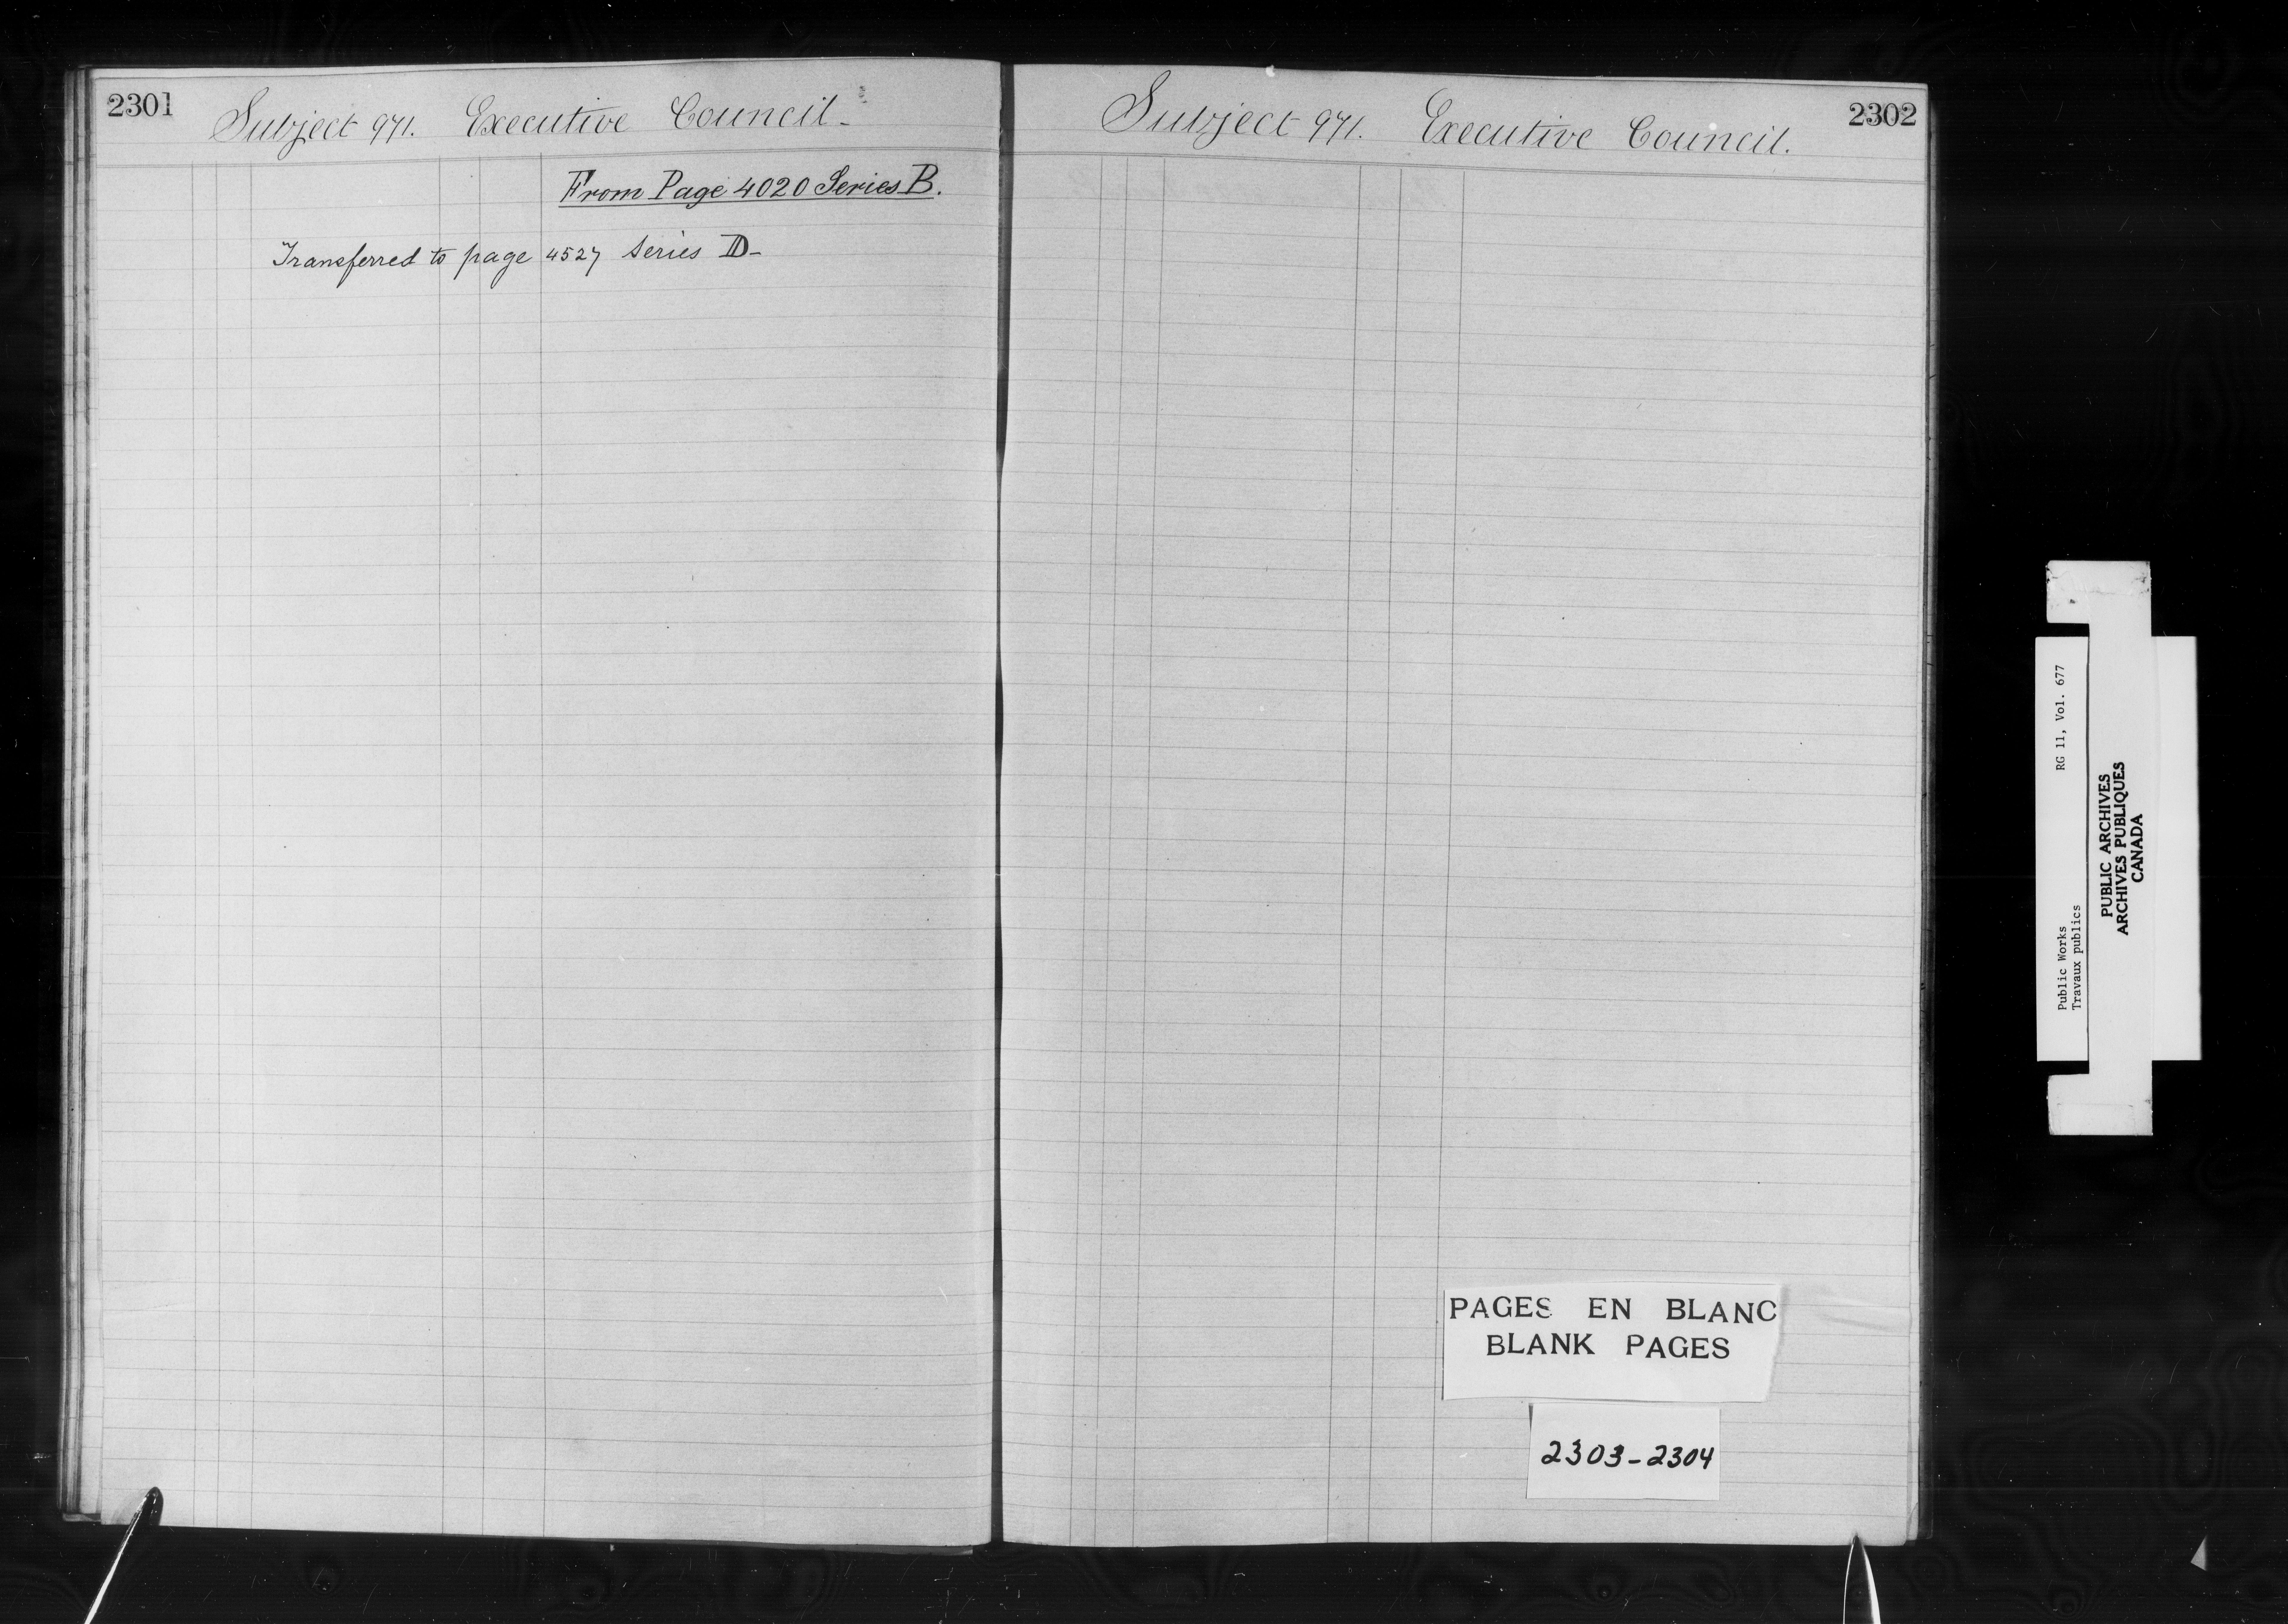 2301
Subject 971. Executive Council.
From Page 4020 Series B.
Transferred to page 4527 Series D-
Subject 971. Executive Council.
2302
PAGES EN BLANC
BLANK PAGES
2303-2304
Public Works RG 11, Vol. 677
Travaux publics
PUBLIC ARCHIVES
ARCHIVES PUBLIQUES
CANADA